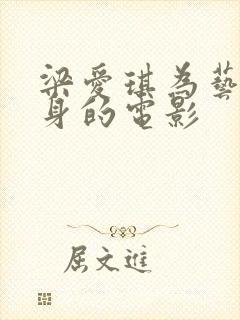 梁愛琪為藝
身的電影
屈文進